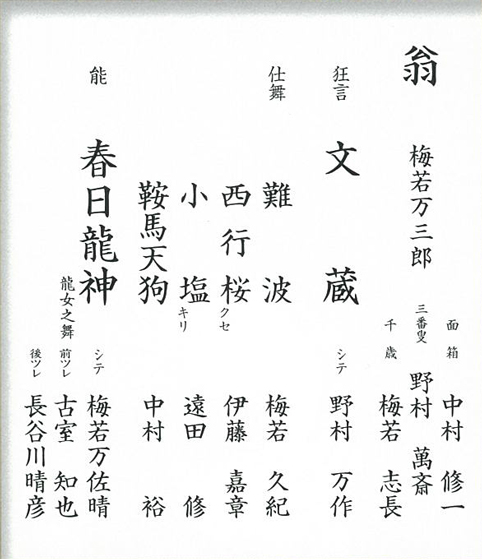 面箱 中村 修一
翁 梅若万三郎 三番叟 野村 萬斎
千歳 梅若 志長
狂言 文蔵 シテ 野村 万作
仕舞 難波 梅若 久紀
西行桜 クセ 伊藤 嘉章
小塩 キリ 遠田 修
鞍馬天狗 中村 裕
能 春日龍神 シテ 梅若万佐晴
龍女之舞 前ツレ 古室 知也
後ツレ 長谷川晴彦